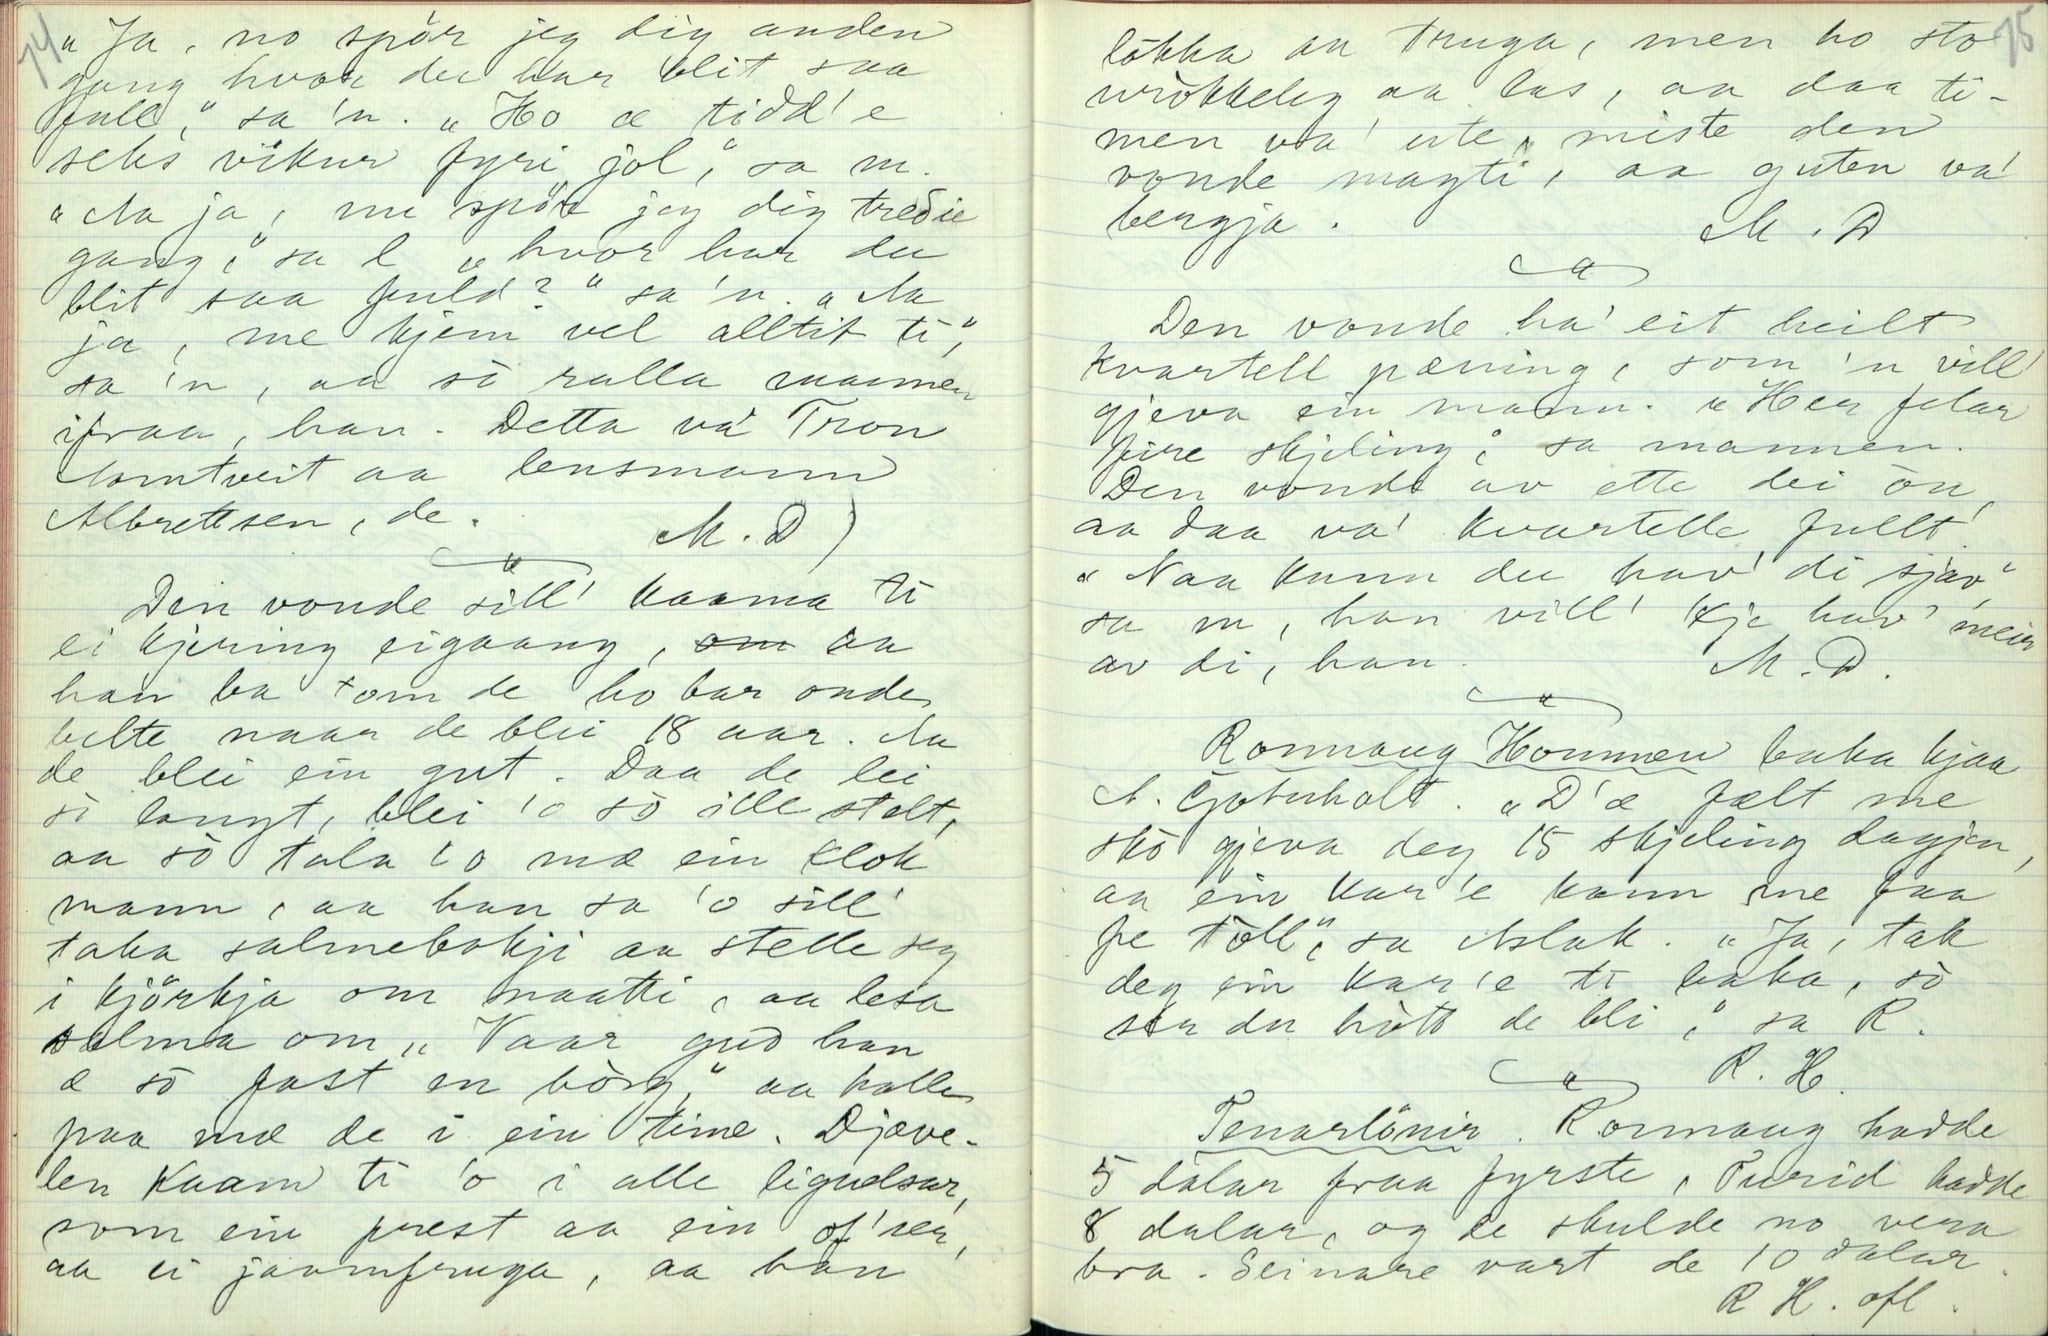 74
"Ja, no spör jeg dig anden
gang hvor du har blit saa
full," sa 'n. "Ho æ tidd'e
seks vikur fyri jol," sa m.
"Aa ja, nu spör jeg dig tredie
gang," sa l "hvor har du
blit saa fuld?" sa 'n. "Aa
ja, me kjem vel alltit ti",
sa 'n, aa sò ralla mannen
ifraa, han. Detta va' Tron
Aamtveit aa lensmann
Albrettsen, de. M. D)
Den vonde sill' kaama ti
ei kjering eigaang, aa
han ba om de ho bar onde
belte naar de blei 18 aar. Aa
de blei ein gut. Daa de lei
sò langt, blei 'o sò ille stelt,
aa sò tala 'o mæ ein klok
mann, aa han sa 'o sill'
taka salmebokji aa stelle seg
i kjörkja om naatti, aa lesa
salma om "Vaar gud han
æ sò fast en bòrg," aa halle
paa mæ de i ein time. Djæve-
len kaam ti 'o i alle ligudsar,
som ein prest aa ein of'ser,
aa ei jaamfruga, aa han
75
lökka aa truga, men ho sto
urökkeleg aa las, aa daa ti-
men va' ute, miste den
vonde magti, aa guten va'
bergja. M. D
Den vonde ha' eit heilt
kvartell pæning, som 'n vill'
gjeva ein mann. "Her felar
fire skjeling," sa mannen.
Den vonde av ette dei òn,
aa daa va' kvartelle fullt.
"Naa kunn du hav' di sjav",
sa m, han vill' kje hav' meir
av di, han. M. D.
Ronnaug Hommen baka hjaa
A. Gjøterholt. "D'æ fælt me
skò gjeva deg 15 skjeling dagjen,
aa ein kar'e kann me faa
fe tòll", sa Aslak. "Ja, tak
deg ein kar'e ti baka, sò
ser du hòtt de bli," sa R.
R. H.
Tenarlönir. Ronnaug hadde
5 dalar fraa fyrste, Turid hadde
8 dalar, og de skulde no vera
bra. Seinare vart de 10 dalar.
R H. ofl.